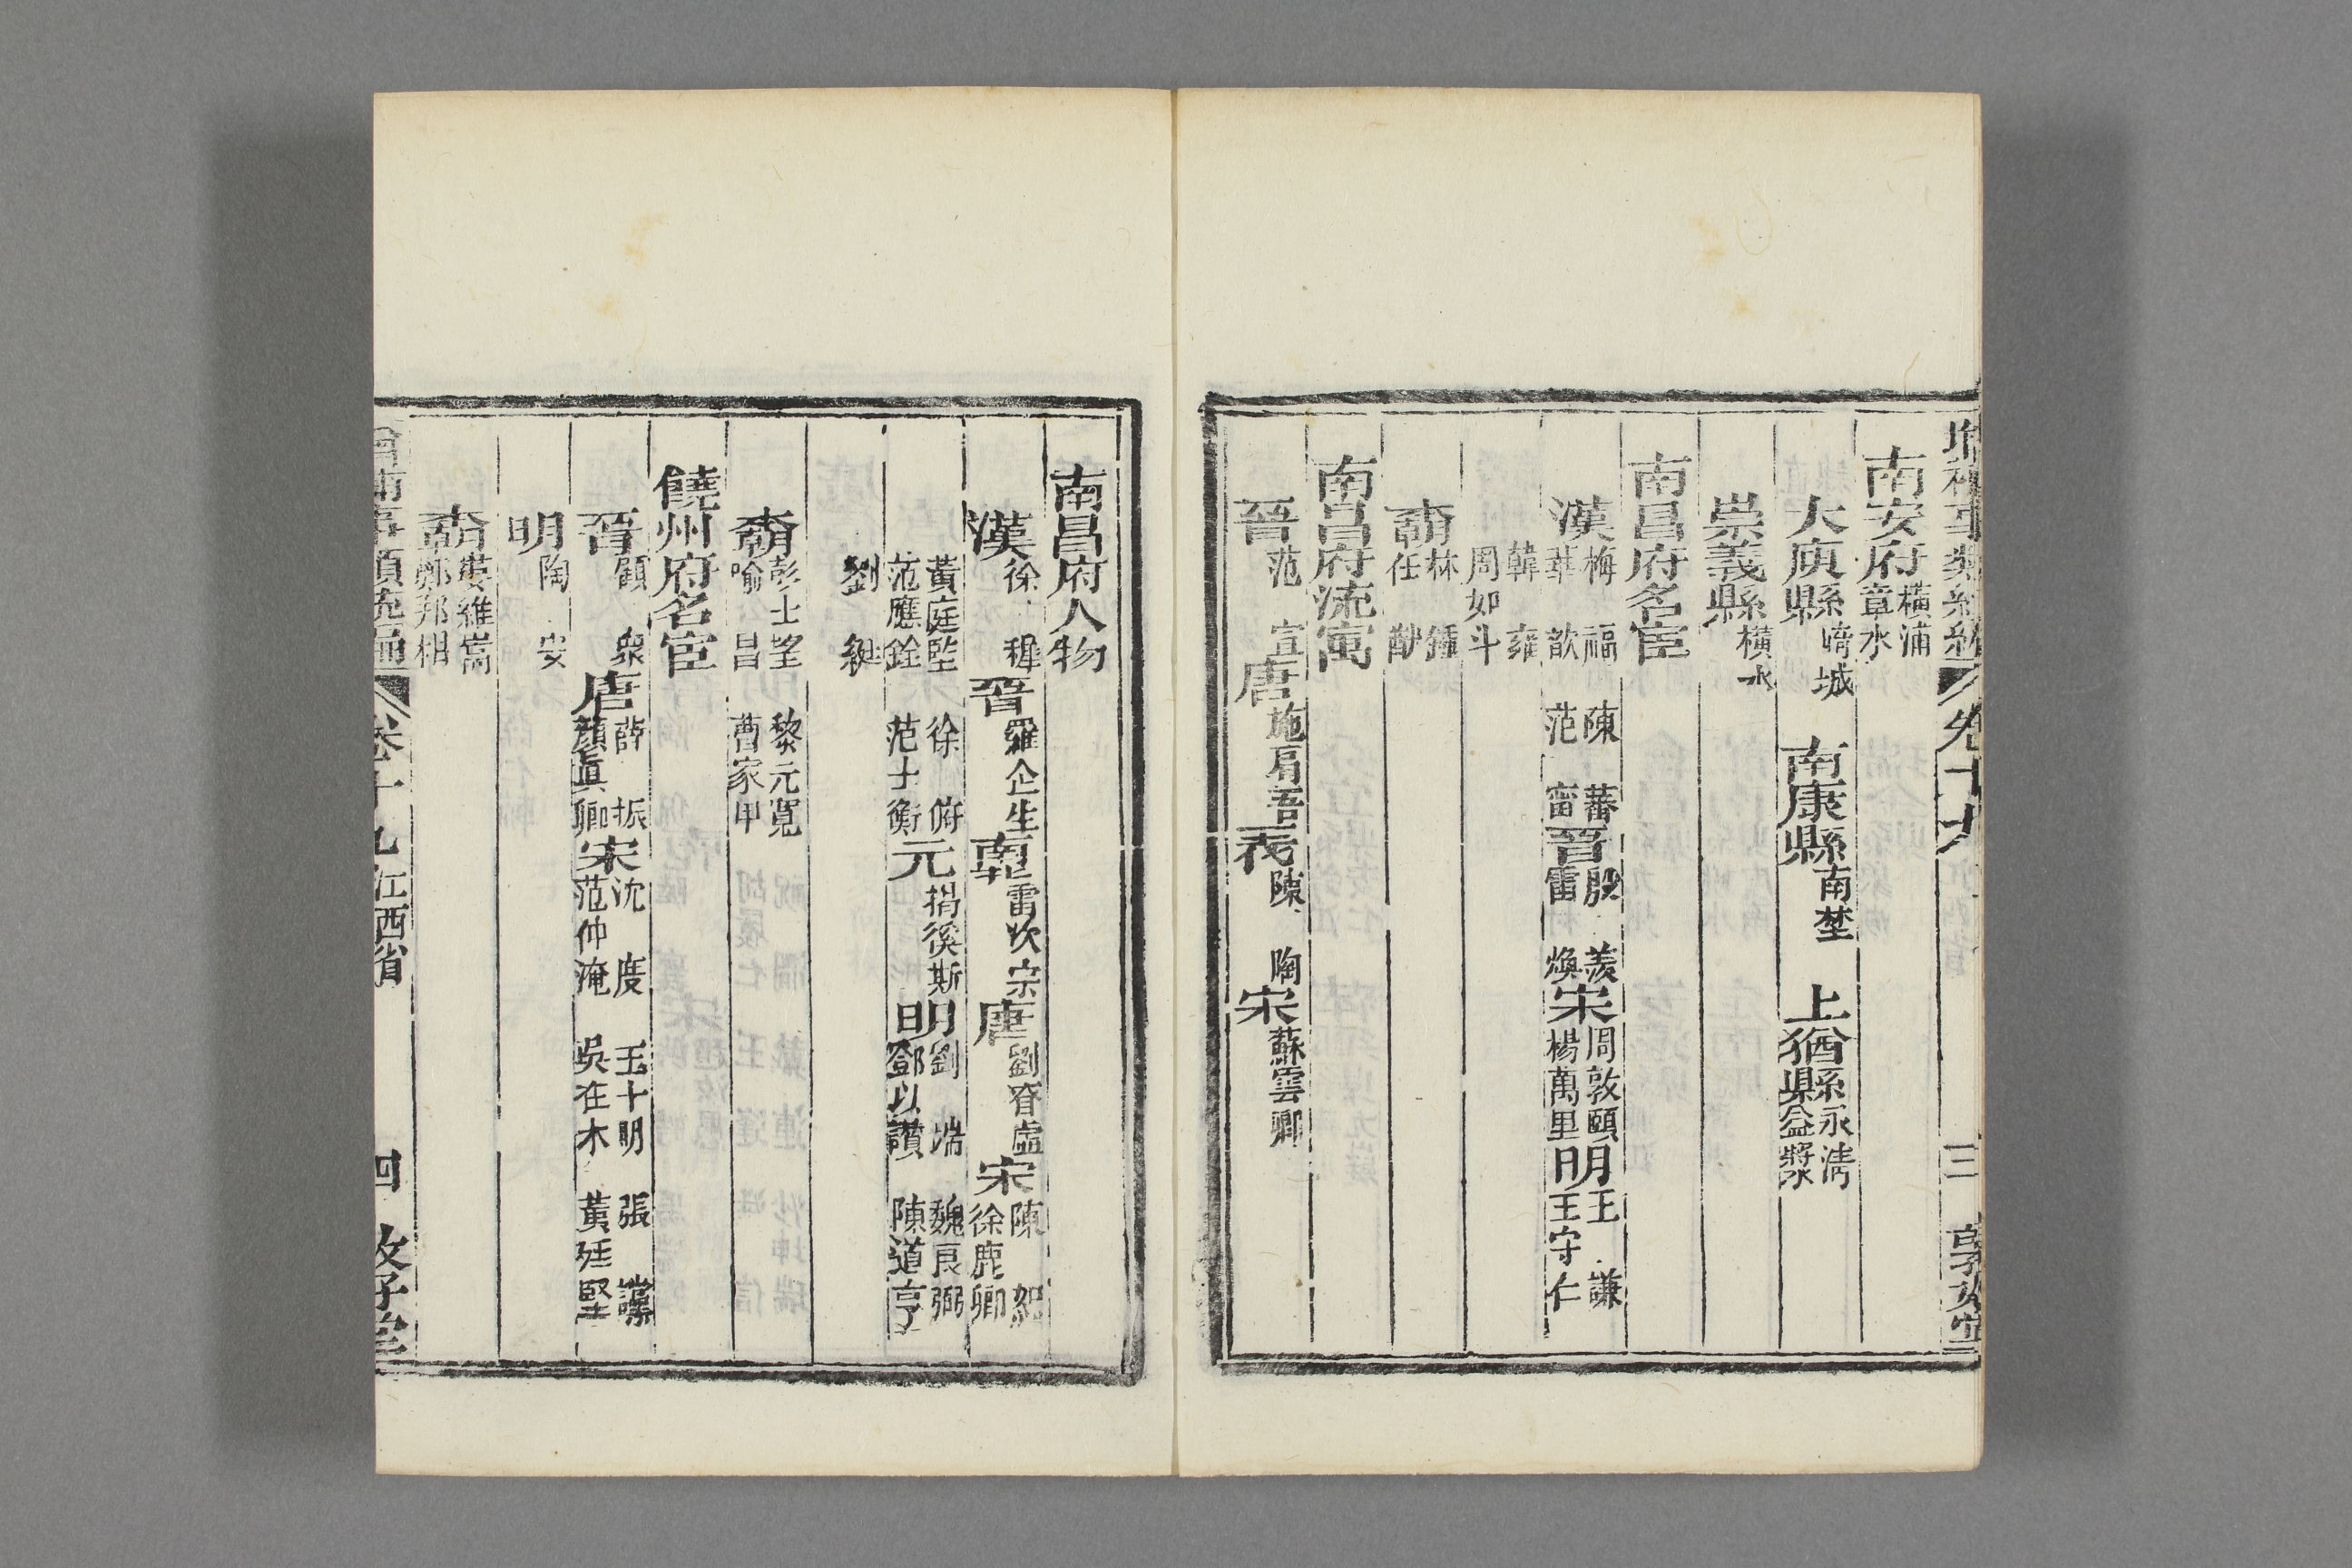 卷十九 三
南安府 橫浦 章水
大庾縣 嶠城 南康縣 南埜 上猶縣 永清 益漿水
崇義縣 橫水
南昌府名宦
漢 梅福 華歆 陳蕃 范甯 晉 殷羨 雷煥 宋 周敦頤 楊萬里 明 王謙 王守仁
韓雍 周如斗
林鍾 任猷
南昌府流寓
晉 范宣 唐 施肩吾 陳陶 宋 蘇雲卿
南昌府人物
漢 徐穉 晉 羅企生 雷次宗 唐 劉眘虛 宋 陳恕 徐鹿卿
黃庭堅 范應銓 徐俯 范士衡 元 揭徯斯 明 劉端 鄧以讚 魏良弼 陳道亨
劉綎
彭士望 喻昌 黎元寬 曹家甲
饒州府名宦
晉 顧眾 唐 薛振 顏眞卿 宋 沈度 范仲淹 王十朋 吳在木 張讜 黃廷堅
明 陶安
婁維嵩 鄭邦相
卷十九 江西省 四